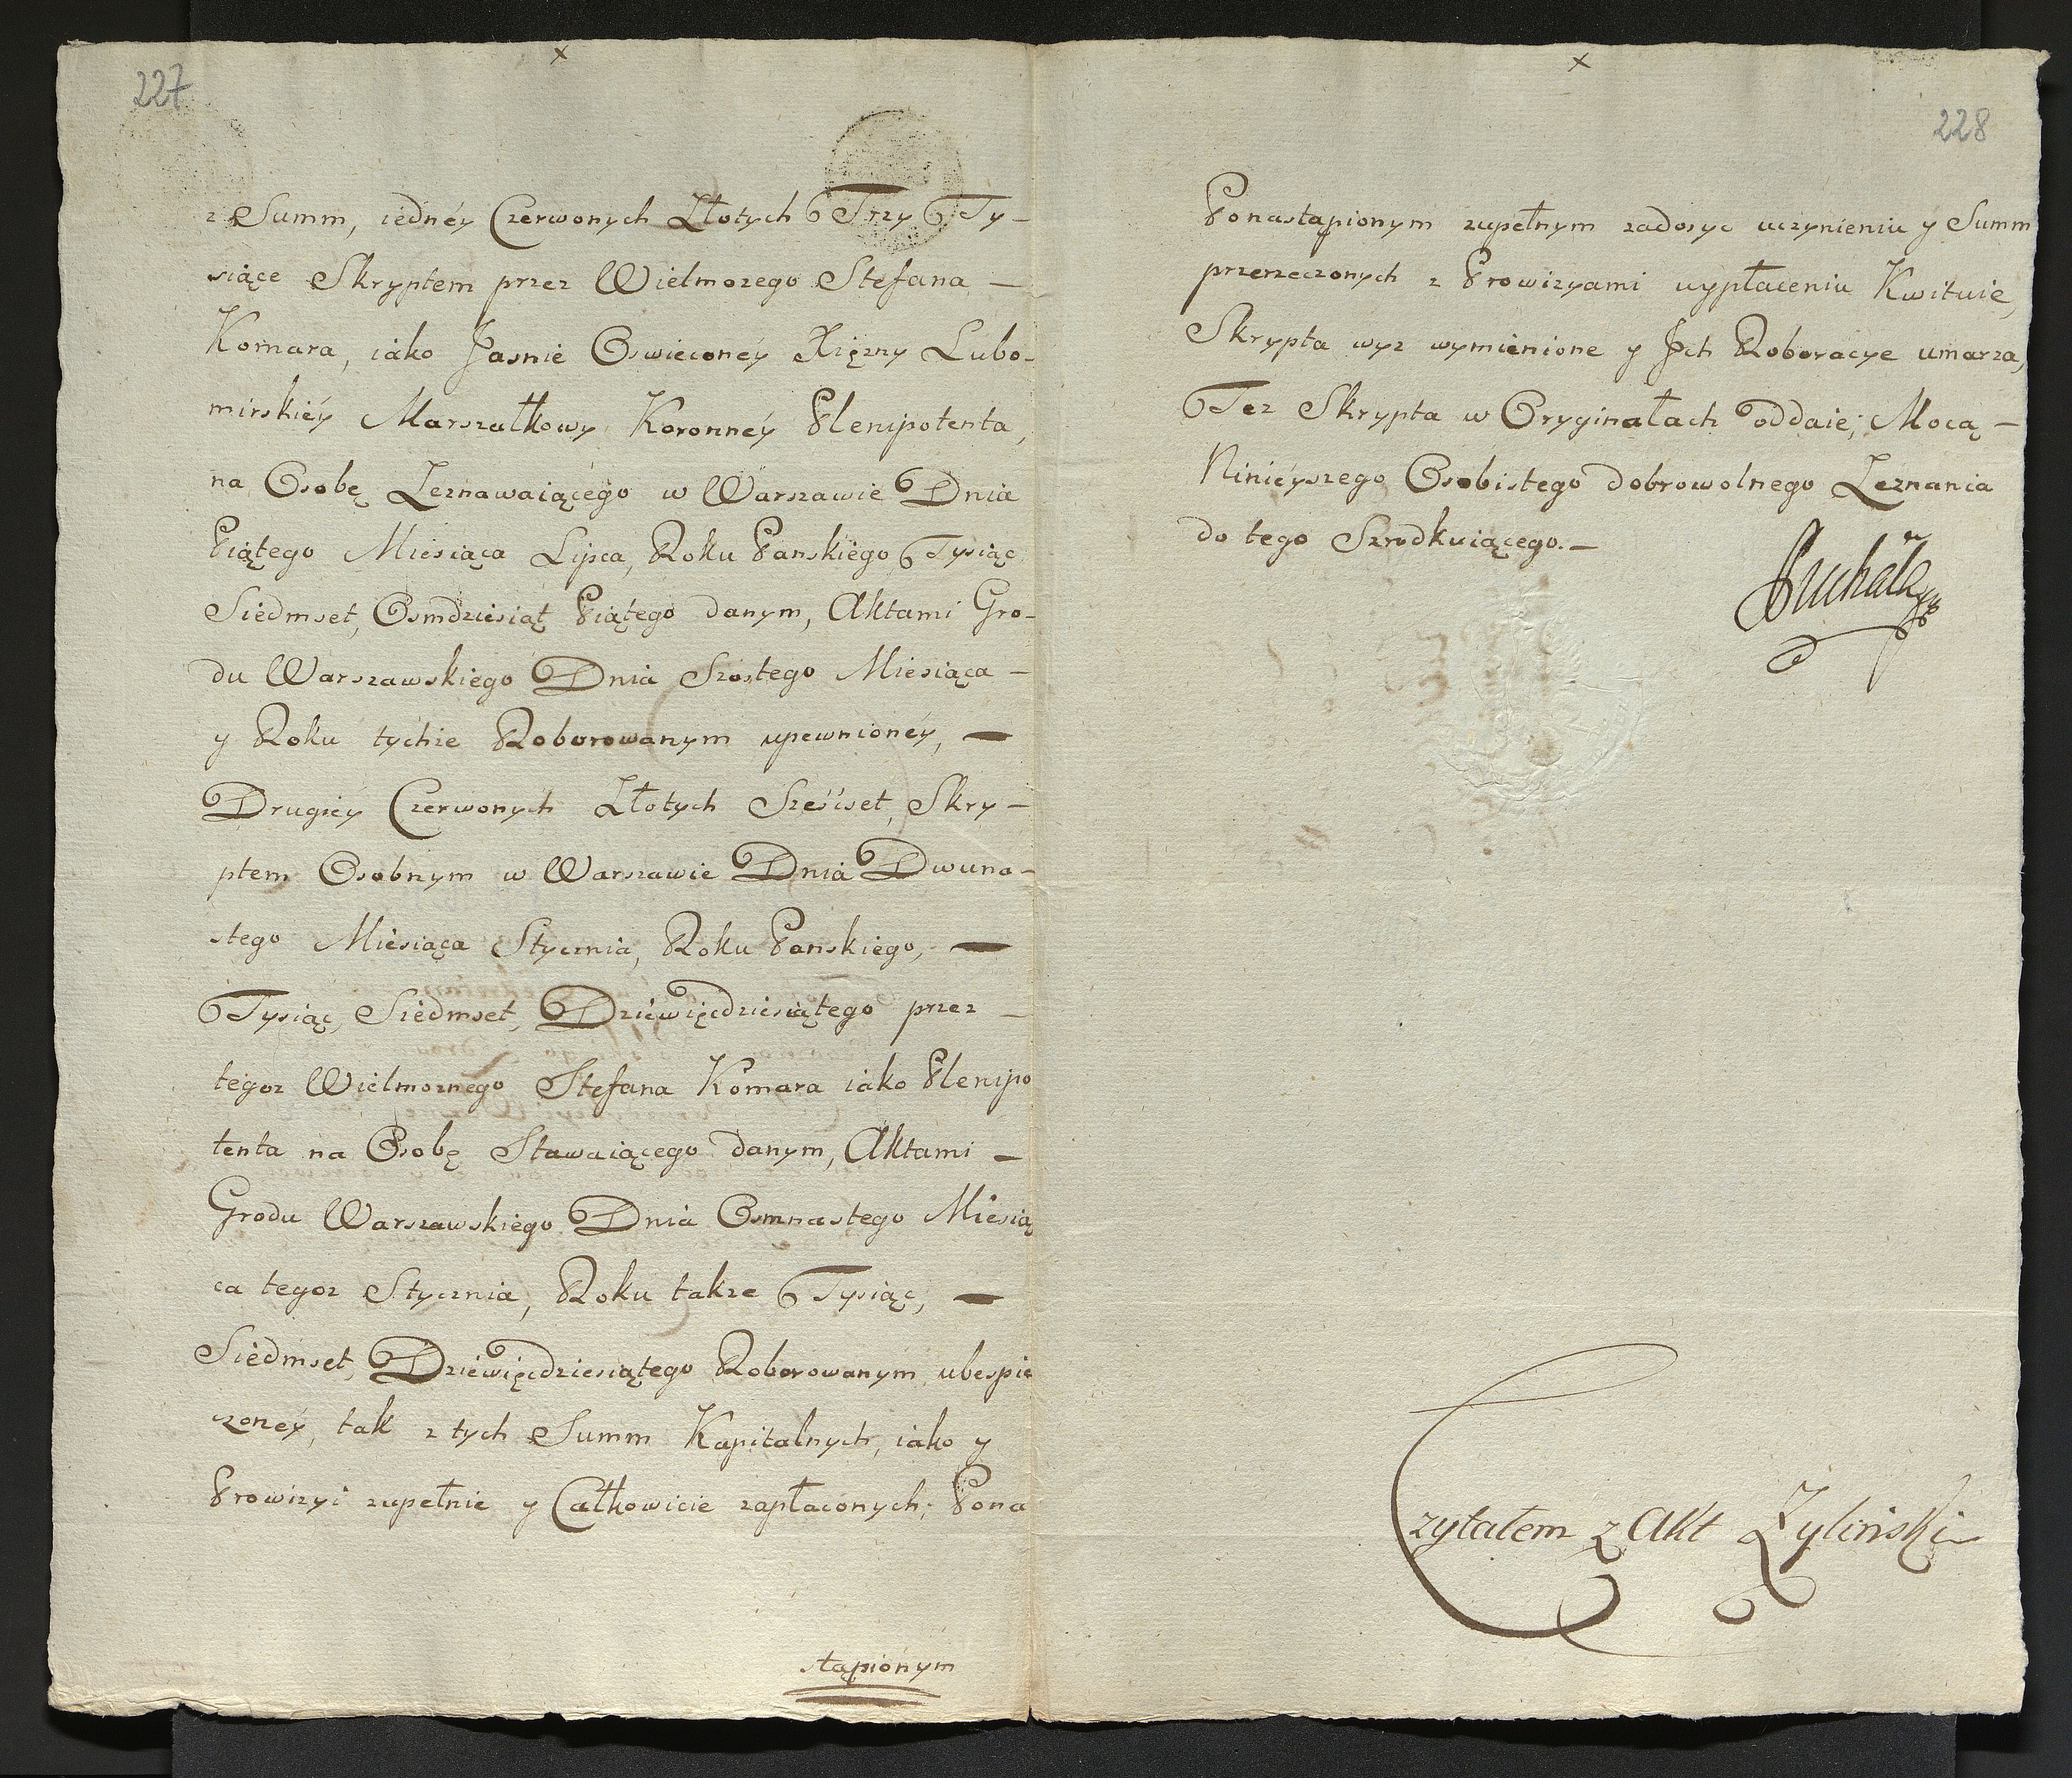 227
z Summ, iedney Czerwonych Złotych Trzy Ty-
siące Skryptem przez Wielmozego Stefana —
Komara, iako Jasnie Oswieconey Xięzny Lubo-
mirskiey Marszałkowy Koronney Plenipotenta,
na Osobę Zeznawaiącego w Warszawie Dnia
Piątego Miesiąca Lipca, Roku Panskiego Tysiąc
Siedmset, Osmdziesiąt Piątego danym, Aktami Gro-
du Warszawskiego Dnia Szostego Miesiąca —
y Roku tychze Roborowanym upewnioney, —
Drugiey Czerwonych Złotych Sześćset, Skry-
ptem Osobnym w Warszawie Dnia Dwuna-
stego Miesiąca Stycznia, Roku Panskiego, —
Tysiąc, Siedmset, Dziewięcdziesiątego przez —
tegoz Wielmoznego Stefana Komara iako Plenipo
tenta na Osobę Stawaiącego danym, Aktami —
Grodu Warszawskiego Dnia Osmnastego Miesią
ca tegoz Stycznia, Roku takze Tysiąc, —
Siedmset, Dziewięcdziesiątego Roborowanym ubespie
czoney, tak z tych Summ Kapitalnych, iako y
Prowizyi zupełnie y Całkowicie zapłaconych; Pona
stąpionym
228
Ponastąpionym zupełnym zadosyc uczynieniu y Summ
przerzeczonych z Prowizyami wypłaceniu Kwituie,
Skrypta wyz wymienione y Jch Roboracye umarza,
Tez Skrypta w Oryginałach oddaie; Mocą —
Ninieyszego Osobistego dobrowolnego Zeznania
do tego Szrodkuiącego. —
Czytałem z Akt Zyliński